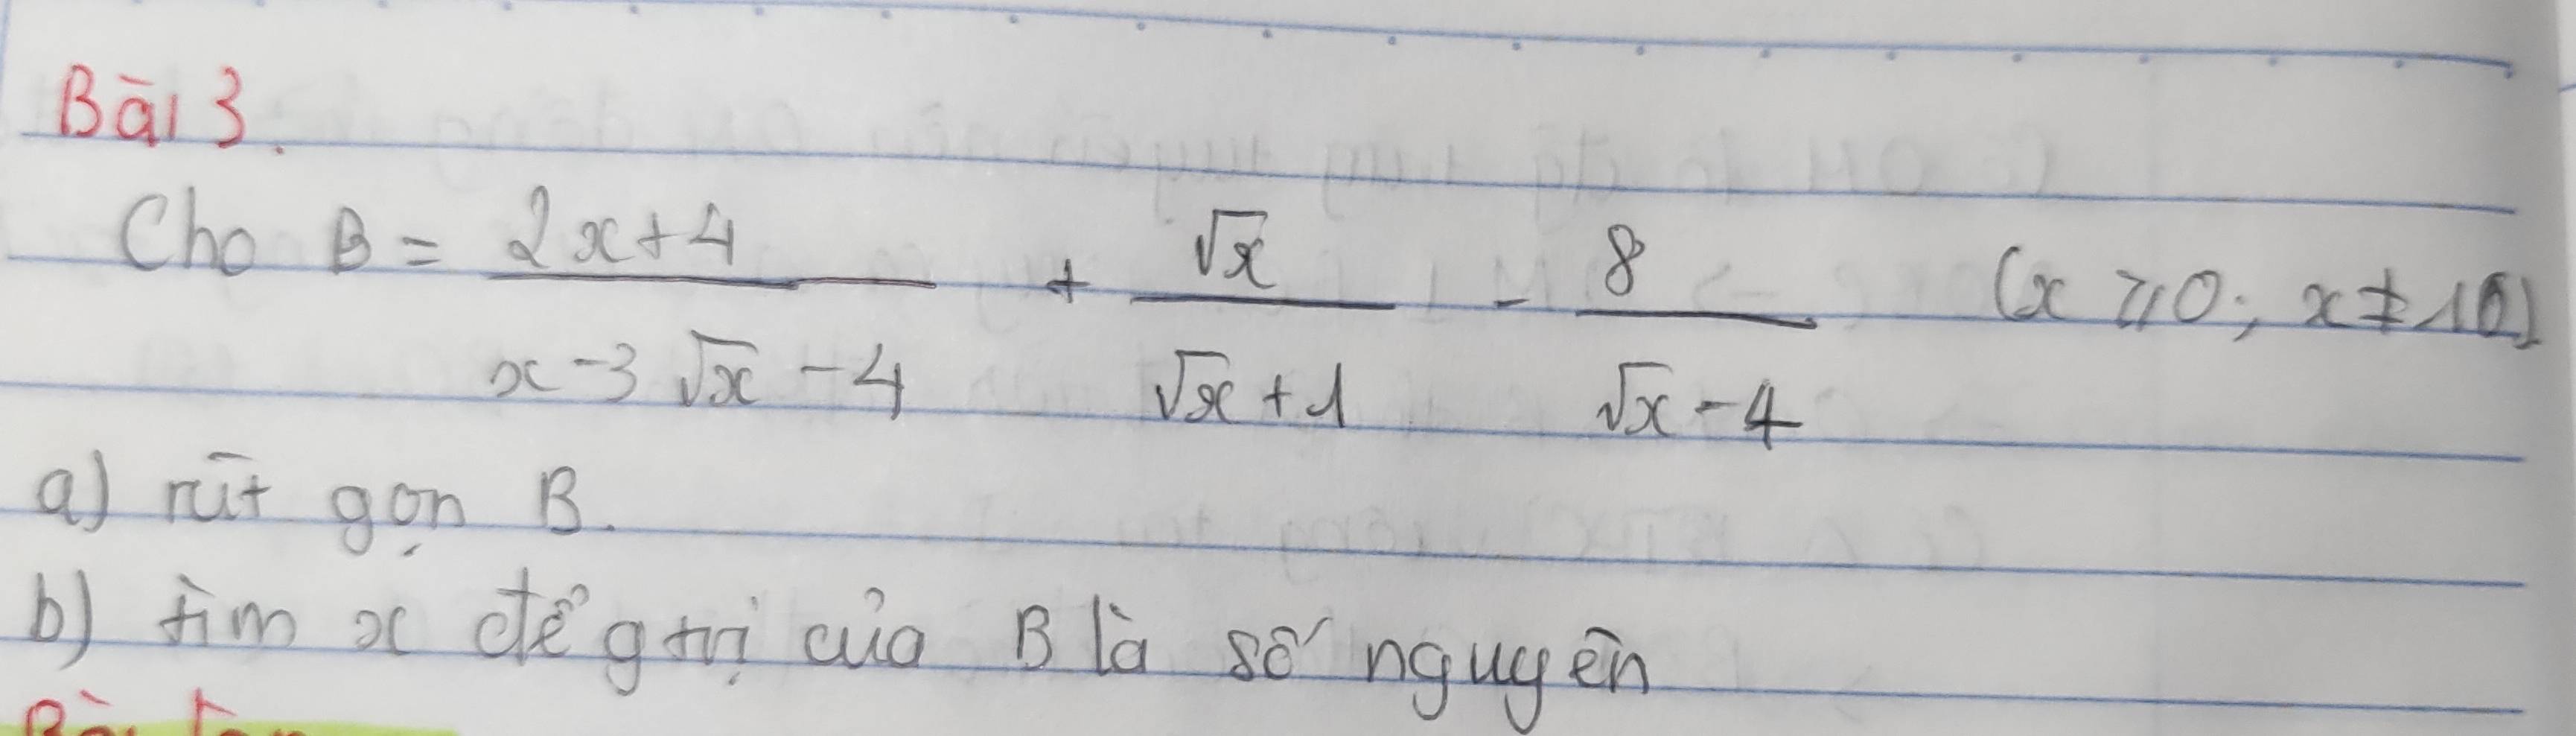 Bài 3.
Cho B = \frac{2x+4}{x-3\sqrt{x}-4} + \frac{\sqrt{x}}{\sqrt{x}+1} - \frac{8}{\sqrt{x}-4} (x ⩾ 0; x ≠ 16)
a) rút gọn B.
b) tìm x để gtrị của B là số nguyên